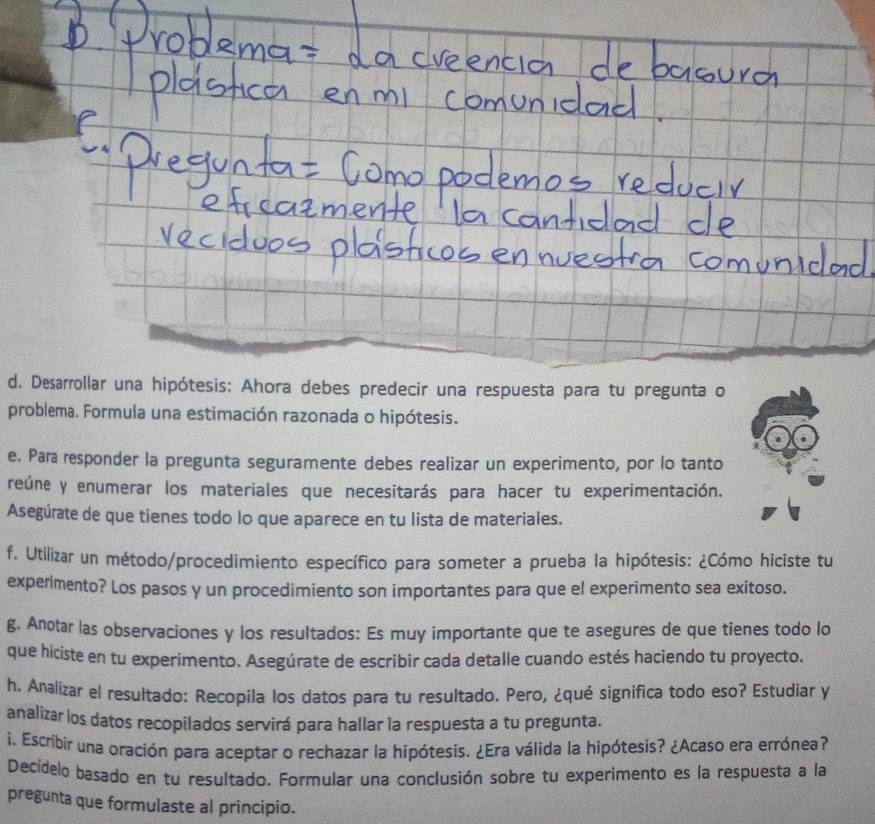 B. Problema = La creencia de basura
plástica en mi comunidad.
C. Pregunta = Como podemos reducir
eficazmente la cantidad de
reciduos plásticos en nuestra comunidad.
d. Desarrollar una hipótesis: Ahora debes predecir una respuesta para tu pregunta o
problema. Formula una estimación razonada o hipótesis.
e. Para responder la pregunta seguramente debes realizar un experimento, por lo tanto
reúne y enumerar los materiales que necesitarás para hacer tu experimentación.
Asegúrate de que tienes todo lo que aparece en tu lista de materiales.
f. Utilizar un método/procedimiento específico para someter a prueba la hipótesis: ¿Cómo hiciste tu
experimento? Los pasos y un procedimiento son importantes para que el experimento sea exitoso.
g. Anotar las observaciones y los resultados: Es muy importante que te asegures de que tienes todo lo
que hiciste en tu experimento. Asegúrate de escribir cada detalle cuando estés haciendo tu proyecto.
h. Analizar el resultado: Recopila los datos para tu resultado. Pero, ¿qué significa todo eso? Estudiar y
analizar los datos recopilados servirá para hallar la respuesta a tu pregunta.
i. Escribir una oración para aceptar o rechazar la hipótesis. ¿Era válida la hipótesis? ¿Acaso era errónea?
Decídelo basado en tu resultado. Formular una conclusión sobre tu experimento es la respuesta a la
pregunta que formulaste al principio.